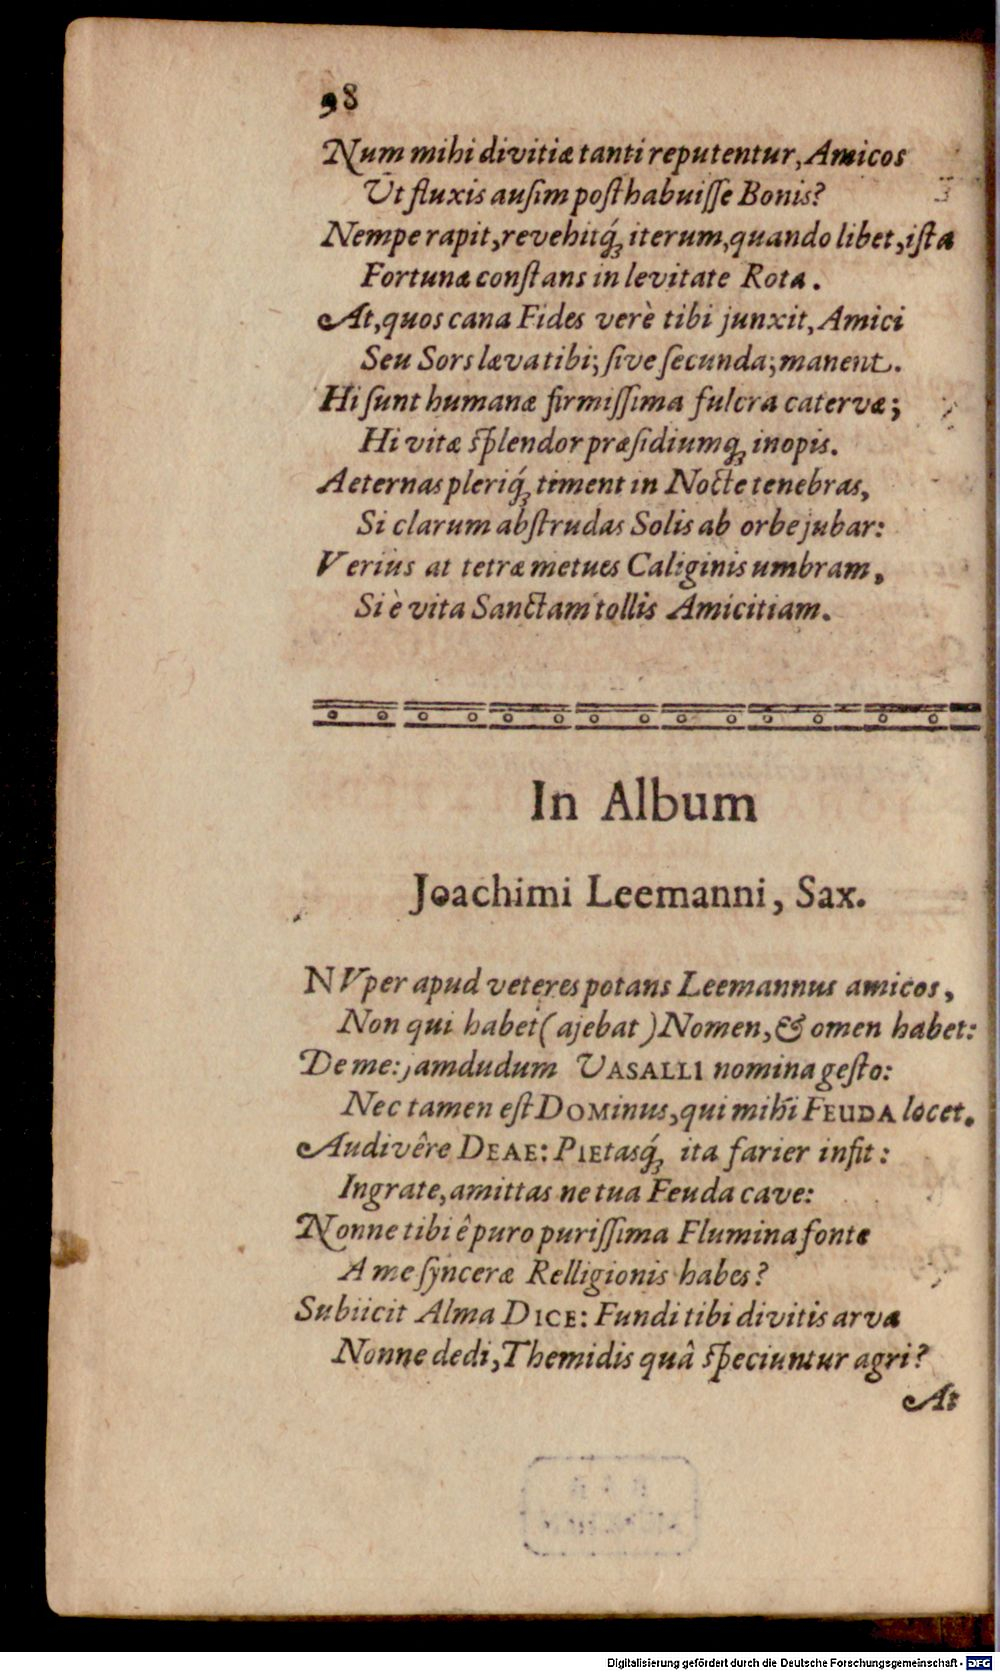 98
Num mihi divitiæ tanti reputentur, Amicos
Ut fluxis ausim posthabuiſſe Bonis?
Nempe rapit, revehitq́ꝫ iterum, quando libet, iſta
Fortunæ conſtans in levitate Rota.
At, quos cana Fides verè tibi junxit, Amici
Seu Sors læva tibi; ſive ſecunda; manent.
Hi ſunt humanæ firmiſſima fulcra catervæ;
Hi vitæ ſplendor præſidiumqꝫ inopis.
Aeternas pleriq́ꝫ timent in Nocte tenebras,
Si clarum abſtrudas Solis ab orbe jubar:
Verius at tetræ metues Caliginis umbram,
Si è vita Sanctam tollis Amicitiam.
In Album
Joachimi Leemanni, Sax.
NVper apud veteres potans Leemannus amicos,
Non qui habet (ajebat) Nomen, & omen habet:
De me: jamdudum VASALLI nomina geſto:
Nec tamen eſt DOMinus, qui mihi FEUDA locet.
Audivêre DEAE: PIEtasq́ꝫ ita farier inſit:
Ingrate, amittas ne tua Feuda cave:
Nonne tibi ê puro puriſſima Flumina fonte
A me ſynceræ Relligionis habes?
Subiicit Alma DICE: Fundi tibi divitis arva
Nonne dedi, Themidis quâ ſpeciuntur agri?
At
Digitalisierung gefördert durch die Deutsche Forschungsgemeinschaft - DFG